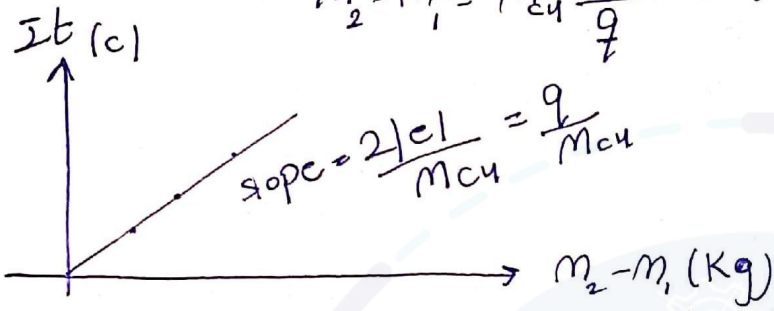 It (C)
slope = 2|e|/Mcu = q/Mcu
m₂-m₁ (Kg)